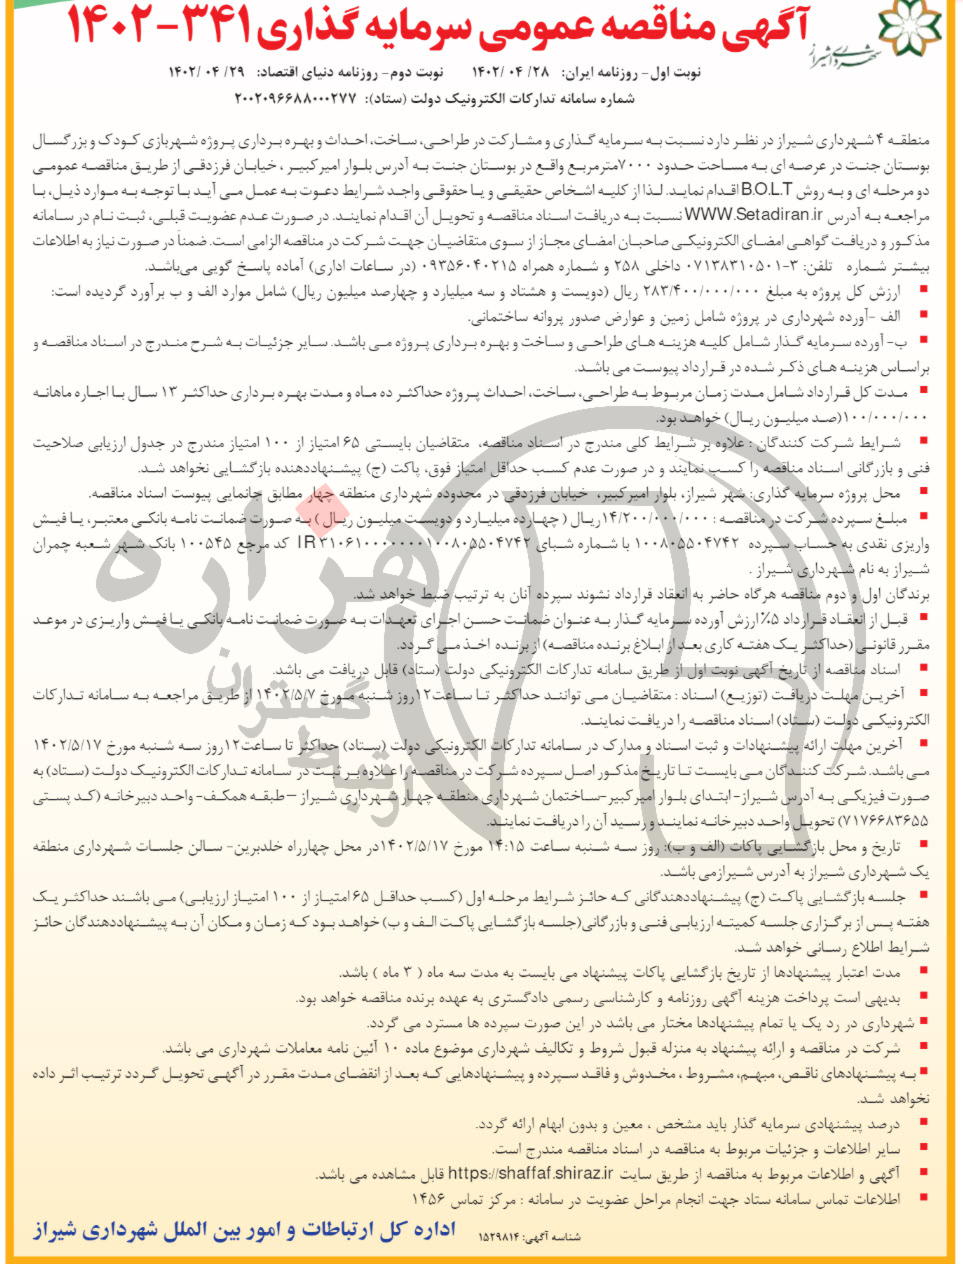 آگهی مناقصه عمومی سرمایه گذاری ۳۴۱-۱۴۰۲
شهرداری شیراز
نوبت اول- روزنامه ایران: ۲۸/ ۰۴ /۱۴۰۲ نوبت دوم- روزنامه دنیای اقتصاد: ۲۹/ ۰۴ /۱۴۰۲
شماره سامانه تدارکات الکترونیک دولت (ستاد): ۲۰۰۲۰۹۶۶۸۸۰۰۰۲۷۷
منطقه ۴ شهرداری شیراز در نظر دارد نسبت به سرمایه گذاری و مشارکت در طراحی، ساخت، احداث و بهره برداری پروژه شهربازی کودک و بزرگسال
بوستان جنت در عرصه ای به مساحت حدود ۷۰۰۰مترمربع واقع در بوستان جنت به آدرس بلوار امیرکبیر ، خیابان فرزدقی از طریق مناقصه عمومی
دو مرحله ای و به روش B.O.L.T اقدام نماید. لذا از کلیه اشخاص حقیقی و یا حقوقی واجد شرایط دعوت به عمل می آید با توجه به موارد ذیل، با
مراجعه به آدرس WWW.Setadiran.ir نسبت به دریافت اسناد مناقصه و تحویل آن اقدام نمایند. در صورت عدم عضویت قبلی، ثبت نام در سامانه
مذکور و دریافت گواهی امضای الکترونیکی صاحبان امضای مجاز از سوی متقاضیان جهت شرکت در مناقصه الزامی است. ضمناً در صورت نیاز به اطلاعات
بیشتر شماره تلفن: ۳-۰۷۱۳۸۳۱۰۵۰۱ داخلی ۲۵۸ و شماره همراه ۰۹۳۵۶۰۴۰۲۱۵ (در ساعات اداری) آماده پاسخ گویی می‌باشد.
■ ارزش کل پروژه به مبلغ ۲۸۳/۴۰۰/۰۰۰/۰۰۰ ریال (دویست و هشتاد و سه میلیارد و چهارصد میلیون ریال) شامل موارد الف و ب برآورد گردیده است:
■ الف -آورده شهرداری در پروژه شامل زمین و عوارض صدور پروانه ساختمانی.
■ ب- آورده سرمایه گذار شامل کلیه هزینه های طراحی و ساخت و بهره برداری پروژه می باشد. سایر جزئیات به شرح مندرج در اسناد مناقصه و
براساس هزینه های ذکر شده در قرارداد پیوست می باشد.
■ مدت کل قرارداد شامل مدت زمان مربوط به طراحی، ساخت، احداث پروژه حداکثر ده ماه و مدت بهره برداری حداکثر ۱۳ سال با اجاره ماهانه
۱۰۰/۰۰۰/۰۰۰(صد میلیون ریال) خواهد بود.
■ شرایط شرکت کنندگان : علاوه بر شرایط کلی مندرج در اسناد مناقصه، متقاضیان بایستی ۶۵ امتیاز از ۱۰۰ امتیاز مندرج در جدول ارزیابی صلاحیت
فنی و بازرگانی اسناد مناقصه را کسب نمایند و در صورت عدم کسب حداقل امتیاز فوق، پاکت (ج) پیشنهاددهنده بازگشایی نخواهد شد.
■ محل پروژه سرمایه گذاری: شهر شیراز، بلوار امیرکبیر، خیابان فرزدقی در محدوده شهرداری منطقه چهار مطابق جانمایی پیوست اسناد مناقصه.
■ مبلغ سپرده شرکت در مناقصه : ۱۴/۲۰۰/۰۰۰/۰۰۰ریال ( چهارده میلیارد و دویست میلیون ریال ) به صورت ضمانت نامه بانکی معتبر، یا فیش
واریزی نقدی به حساب سپرده ۱۰۰۸۰۵۵۰۴۷۴۲ با شماره شبای IR۳۱۰۶۱۰۰۰۰۰۰۰۱۰۰۸۰۵۵۰۴۷۴۲ کد مرجع ۱۰۰۵۴۵ بانک شهر شعبه چمران
شیراز به نام شهرداری شیراز .
برندگان اول و دوم مناقصه هرگاه حاضر به انعقاد قرارداد نشوند سپرده آنان به ترتیب ضبط خواهد شد.
■ قبل از انعقاد قرارداد ۵٪ارزش آورده سرمایه گذار به عنوان ضمانت حسن اجرای تعهدات به صورت ضمانت نامه بانکی یا فیش واریزی در موعد
مقرر قانونی (حداکثر یک هفته کاری بعد از ابلاغ برنده مناقصه) از برنده اخذ می گردد.
■ اسناد مناقصه از تاریخ آگهی نوبت اول از طریق سامانه تدارکات الکترونیکی دولت (ستاد) قابل دریافت می باشد.
■ آخرین مهلت دریافت (توزیع) اسناد : متقاضیان می توانند حداکثر تا ساعت۱۲روز شنبه مورخ ۱۴۰۲/۵/۷ از طریق مراجعه به سامانه تدارکات
الکترونیکی دولت (ستاد) اسناد مناقصه را دریافت نمایند.
■ آخرین مهلت ارائه پیشنهادات و ثبت اسناد و مدارک در سامانه تدارکات الکترونیکی دولت (ستاد) حداکثر تا ساعت۱۲روز سه شنبه مورخ ۱۴۰۲/۵/۱۷
می باشد. شرکت کنندگان می بایست تا تاریخ مذکور اصل سپرده شرکت در مناقصه را علاوه بر ثبت در سامانه تدارکات الکترونیک دولت (ستاد) به
صورت فیزیکی به آدرس شیراز- ابتدای بلوار امیرکبیر-ساختمان شهرداری منطقه چهار شهرداری شیراز –طبقه همکف- واحد دبیرخانه (کد پستی
۷۱۷۶۶۸۳۶۵۵) تحویل واحد دبیرخانه نمایند و رسید آن را دریافت نمایند.
■ تاریخ و محل بازگشایی پاکات (الف و ب): روز سه شنبه ساعت ۱۴:۱۵ مورخ ۱۴۰۲/۵/۱۷در محل چهارراه خلدبرین- سالن جلسات شهرداری منطقه
یک شهرداری شیراز به آدرس شیرازمی باشد.
■ جلسه بازگشایی پاکت (ج) پیشنهاددهندگانی که حائز شرایط مرحله اول (کسب حداقل ۶۵ امتیاز از ۱۰۰ امتیاز ارزیابی) می باشند حداکثر یک
هفته پس از برگزاری جلسه کمیته ارزیابی فنی و بازرگانی(جلسه بازگشایی پاکت الف و ب) خواهد بود که زمان و مکان آن به پیشنهاددهندگان حائز
شرایط اطلاع رسانی خواهد شد.
■ مدت اعتبار پیشنهادها از تاریخ بازگشایی پاکات پیشنهاد می بایست به مدت سه ماه ( ۳ ماه ) باشد.
■ بدیهی است پرداخت هزینه آگهی روزنامه و کارشناسی رسمی دادگستری به عهده برنده مناقصه خواهد بود.
■ شهرداری در رد یک یا تمام پیشنهادها مختار می باشد در این صورت سپرده ها مسترد می گردد.
■ شرکت در مناقصه و ارائه پیشنهاد به منزله قبول شروط و تکالیف شهرداری موضوع ماده ۱۰ آئین نامه معاملات شهرداری می باشد.
■ به پیشنهادهای ناقص، مبهم، مشروط ، مخدوش و فاقد سپرده و پیشنهادهایی که بعد از انقضای مدت مقرر در آگهی تحویل گردد ترتیب اثر داده
نخواهد شد.
■ درصد پیشنهادی سرمایه گذار باید مشخص ، معین و بدون ابهام ارائه گردد.
■ سایر اطلاعات و جزئیات مربوط به مناقصه در اسناد مناقصه مندرج است.
■ آگهی و اطلاعات مربوط به مناقصه از طریق سایت https://shaffaf.shiraz.ir قابل مشاهده می باشد.
■ اطلاعات تماس سامانه ستاد جهت انجام مراحل عضویت در سامانه : مرکز تماس ۱۴۵۶
شناسه آگهی: ۱۵۲۹۸۱۴ اداره کل ارتباطات و امور بین الملل شهرداری شیراز
هزاره
گستران
ارتباط